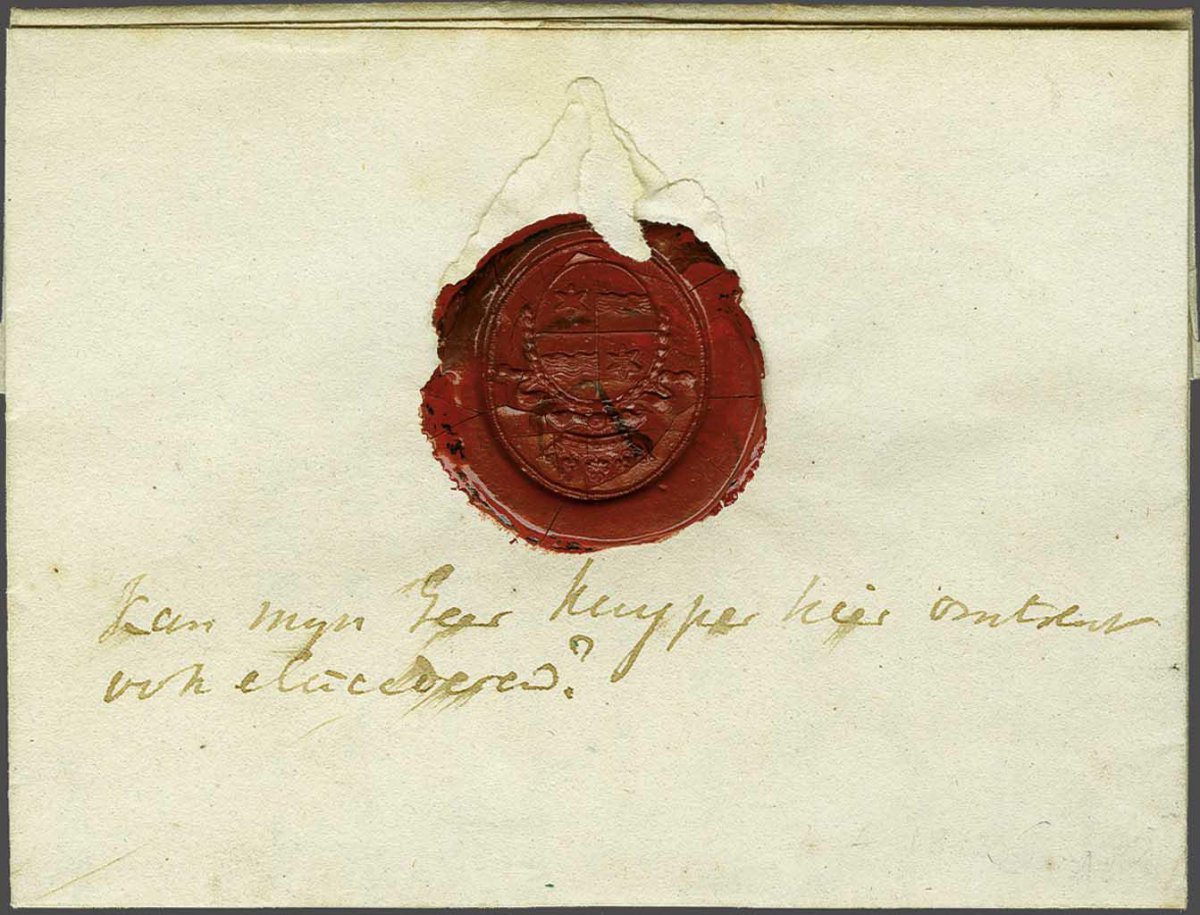 Kan myn Heer Kuyper hier omtrent
ook elucideren?